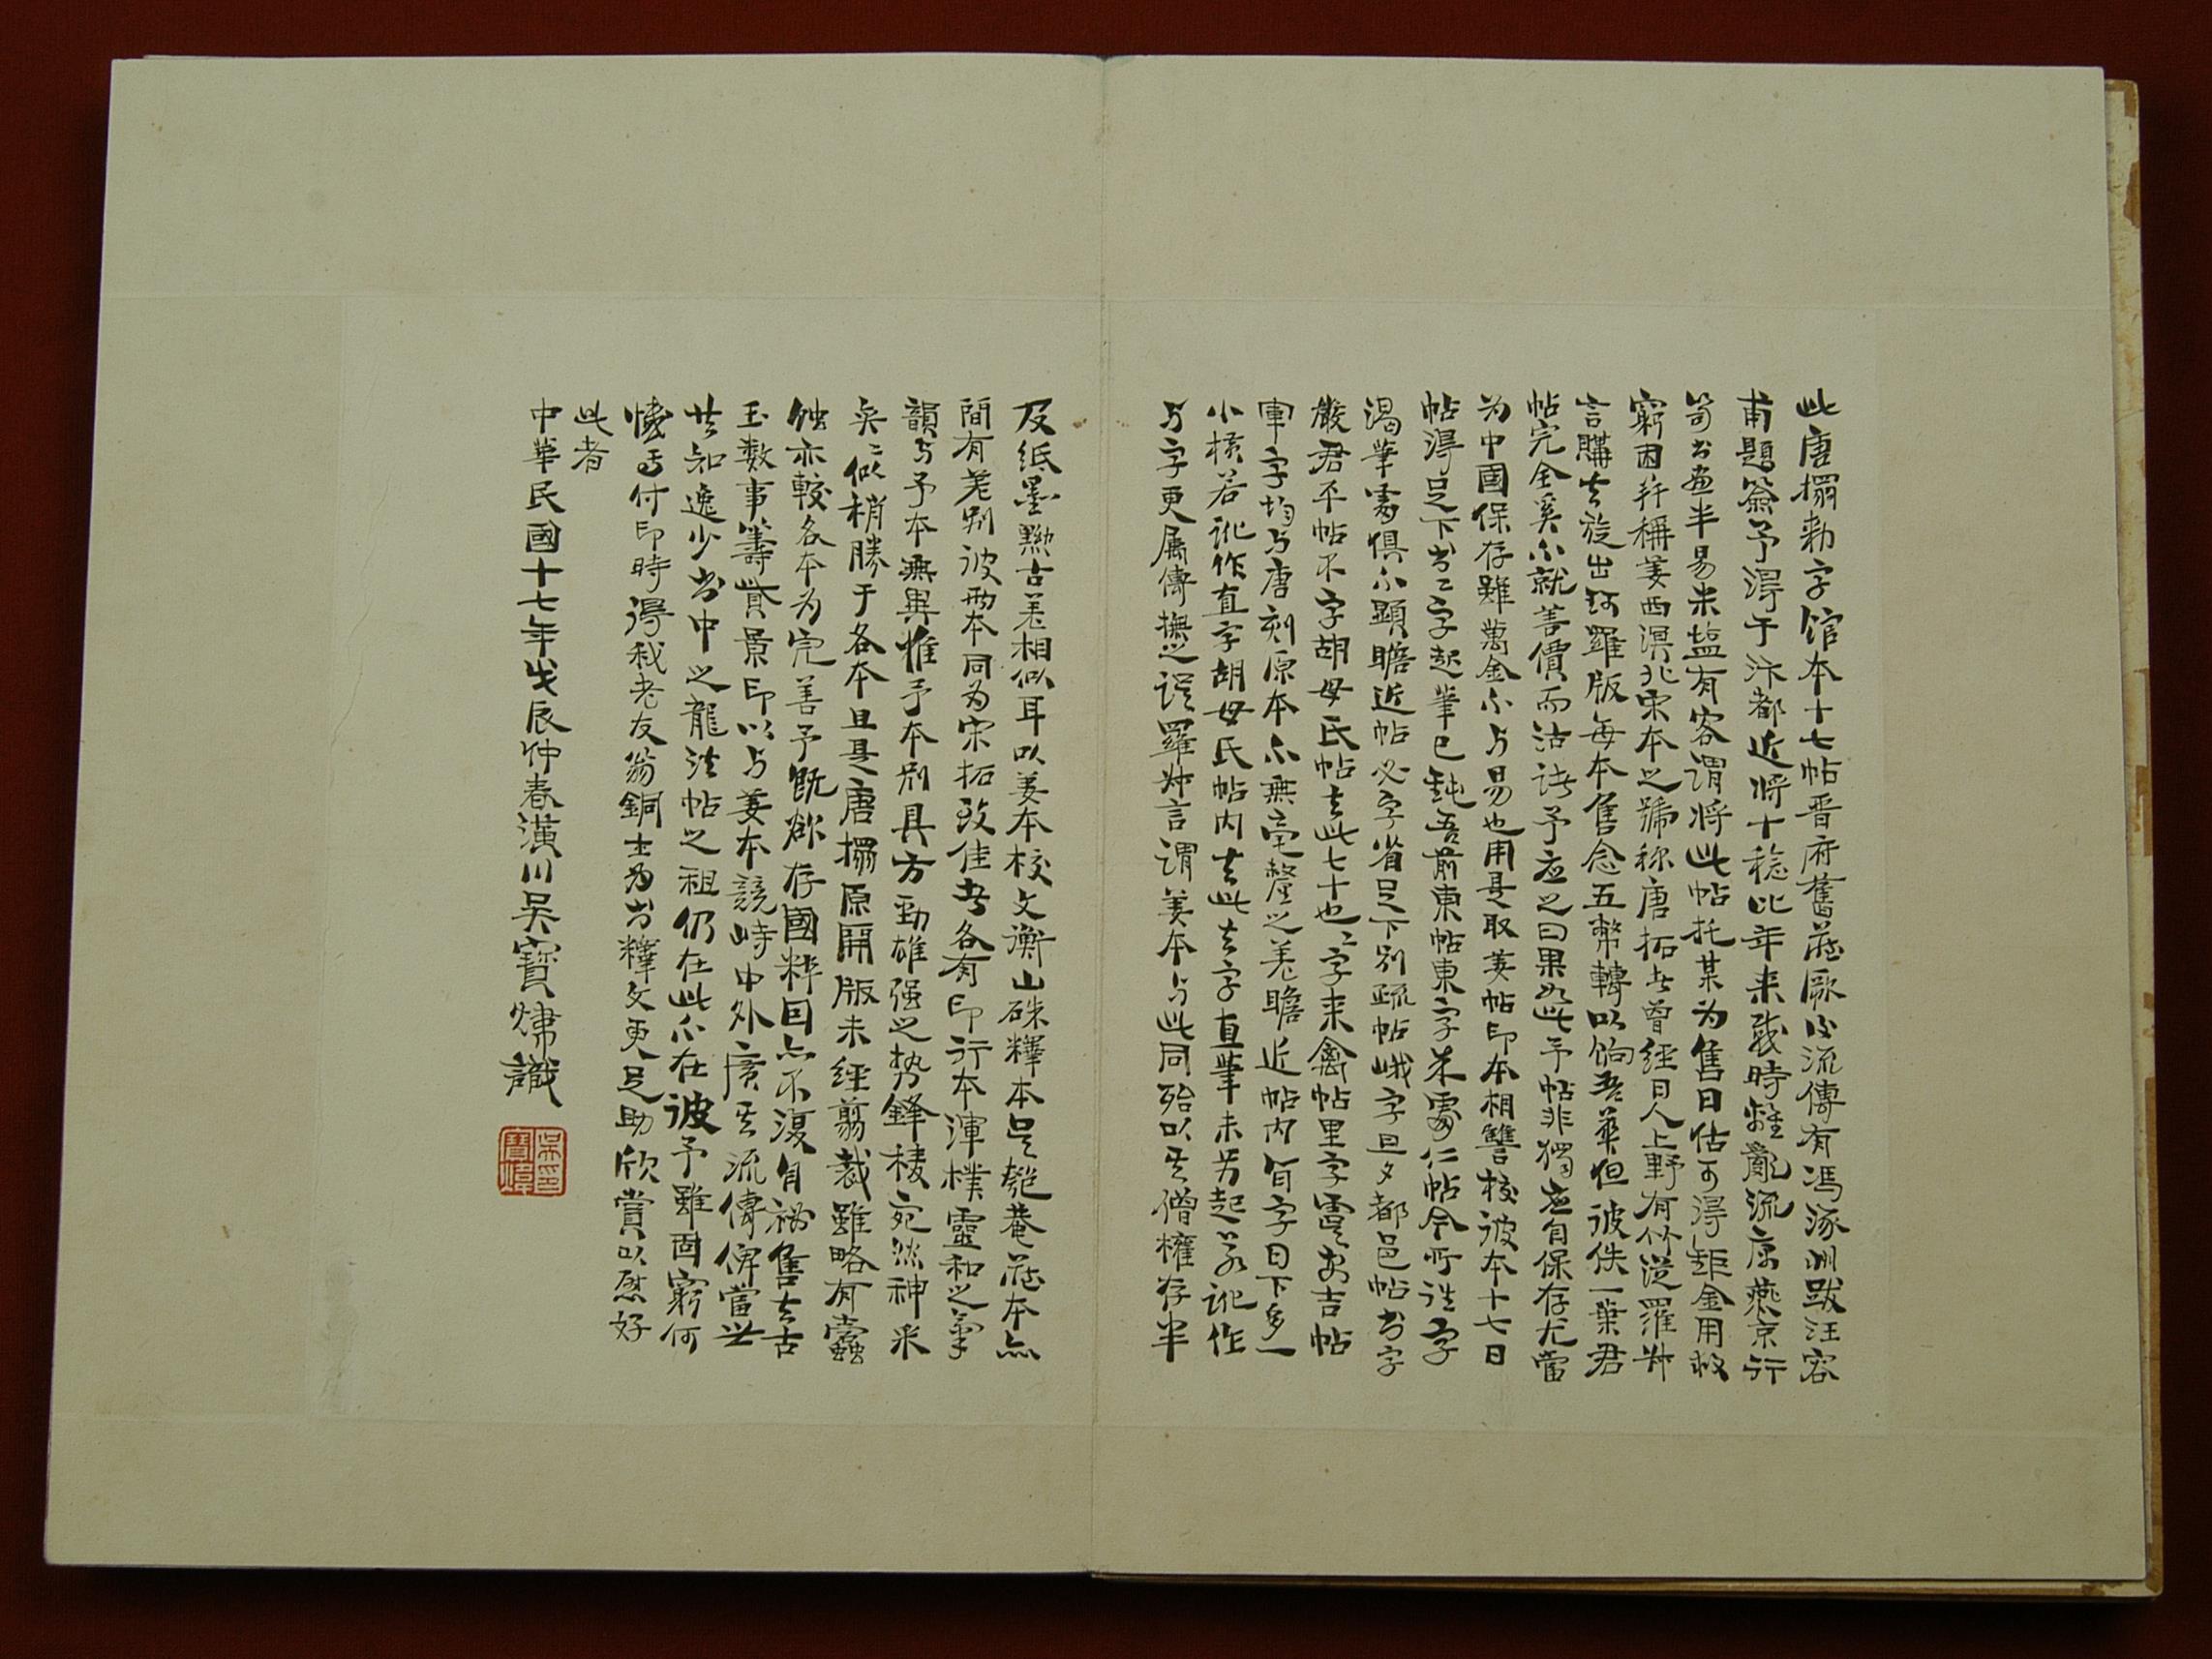 此唐搨勅字館本十七帖晋府舊藏厥後流傳有馮涿州跋汪容
甫題籤予得于汴都近將十稔比年来我時離亂流寓燕京行
笥书畫半易米塩有客謂將此帖托某为售曰估可得鉅金用救
窮困并稱姜西溟北宋本之號称唐拓者曾經日人上野有竹從羅叔
言購去旋出珂羅版每本售念五幣轉以餉吾華但彼佚一葉君
帖完全奚不就善價而沽諸予应之曰果如此予帖非獨应自保存尤當
为中國保存雖萬金不与易也用是取姜帖印本相讐校彼本十七日
帖得足下书二字起筆已鈍吾前東帖東字末處仁帖今所進字
渴筆處俱不顯瞻近帖必字省足下別疏帖峨字旦夕都邑帖书字
嚴君平帖不字胡母氏帖去此七十也二字来禽帖里字虞安吉帖
軍字均与唐刻原本不無毫釐之差瞻近帖內旨字日下多一
小横若訛作直字胡母氏帖内去此去字直筆未另起以致訛作
与字更属傳撫之误羅叔言謂姜本与此同殆以其僧權存半
及紙墨黝古差相似耳以姜本校文衡山硃釋本吳匏菴藏本亦
間有差别彼兩本同为宋拓致佳者各有印行本渾樸靈和之氣
韻与予本無異惟予本别具方勁雄强之势鋒棱宛然神采
奕二似稍勝于各本且是唐搨原開版未經翦裁雖略有蠹
蝕亦較各本为完善予既欲存國粹固亦不復自祕售去古
玉数事籌貲景印以与姜本競峙中外廣其流傳俾當世
共知逸少书中之龍法帖之祖仍在此不在彼予雖固窮何
憾焉付印時得我老友翁銅士为书釋文更足助欣賞以慰好
此者
中華民國十七年戊辰仲春漢川吳寶煒識
吳印寶煒